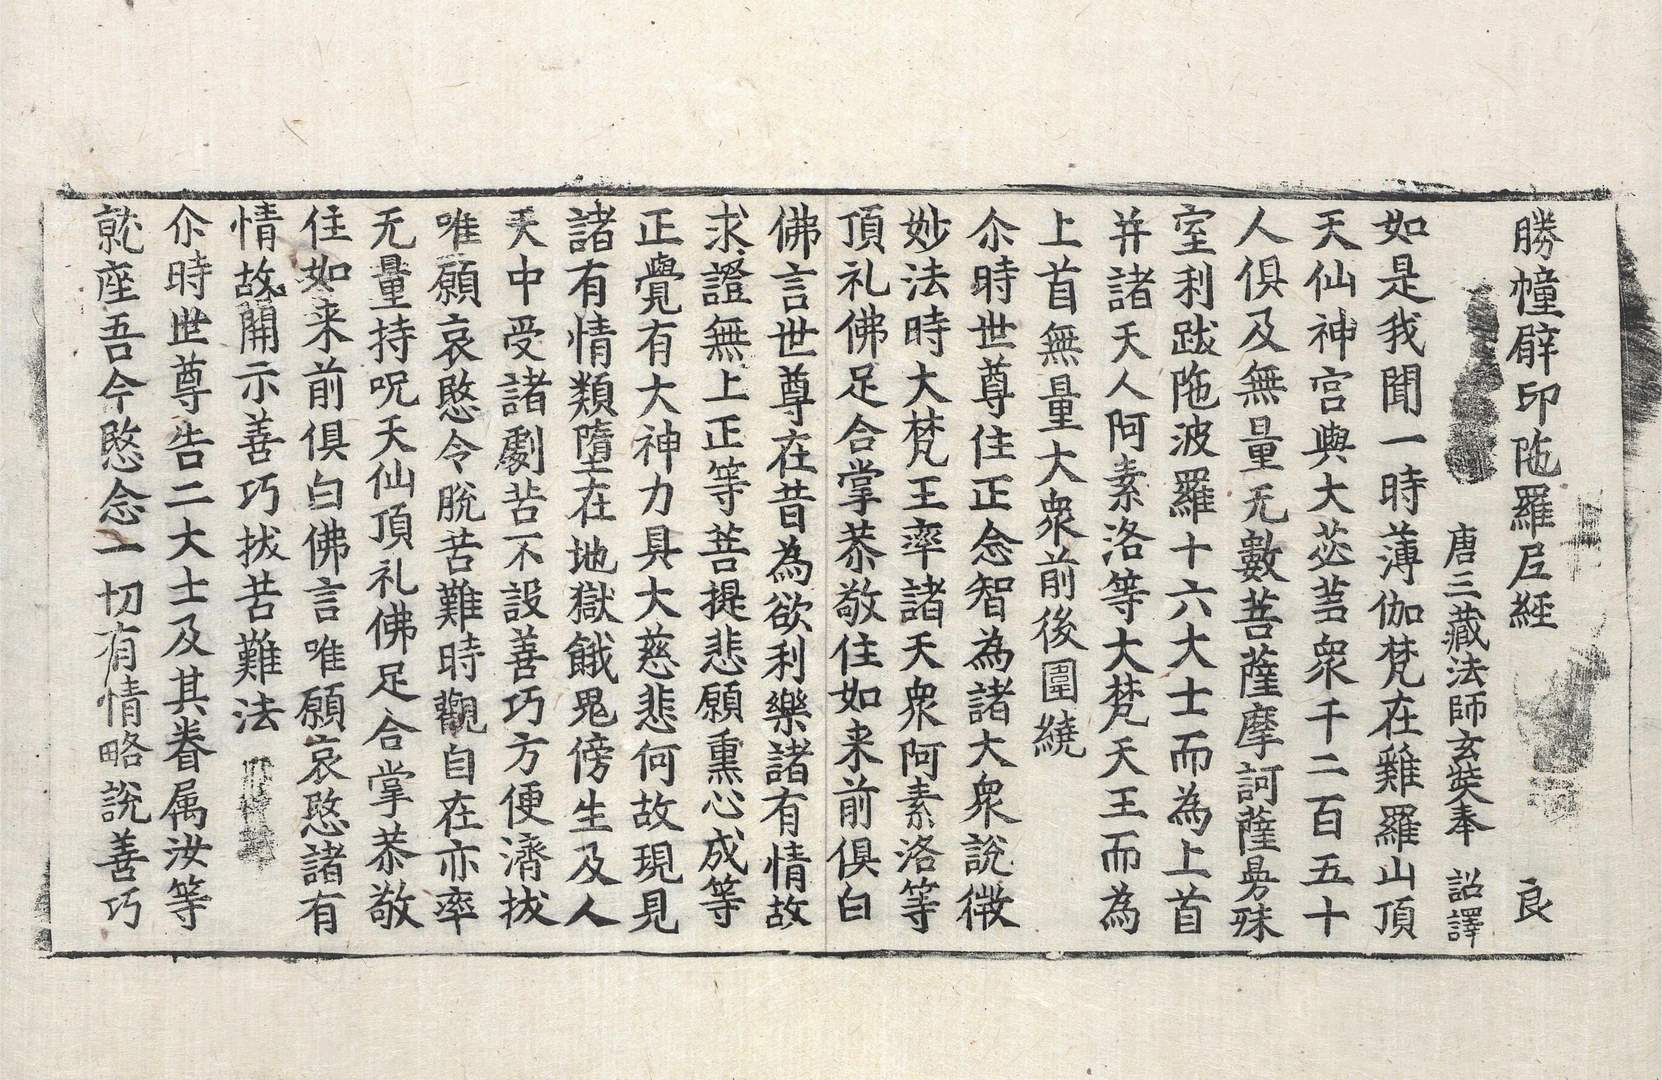 勝幢臂印陁羅尼經　良
唐三藏法師玄奘奉　詔譯
如是我聞一時薄伽梵在雞羅山頂
天仙神宮與大苾芻眾千二百五十
人俱及無量无數菩薩摩訶薩曼殊
室利跋陁波羅十六大士而為上首
并諸天人阿素洛等大梵天王而為
上首無量大眾前後圍繞
尒時世尊住正念智為諸大眾說微
妙法時大梵王率諸天眾阿素洛等
頂礼佛足合掌恭敬住如来前俱白
佛言世尊在昔為欲利樂諸有情故
求證無上正等菩提悲願熏心成等
正覺有大神力具大慈悲何故現見
諸有情類墮在地獄餓鬼傍生及人
天中受諸劇苦不設善巧方便濟拔
唯願哀愍令脫苦難時觀自在亦率
无量持呪天仙頂礼佛足合掌恭敬
住如来前俱白佛言唯願哀愍諸有
情故開示善巧拔苦難法
尒時世尊告二大士及其眷属汝等
就座吾今愍念一切有情略說善巧